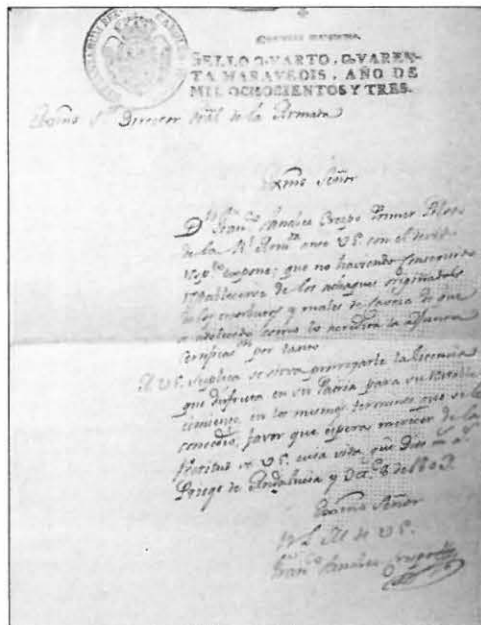 SELLO QVARTO, QVAREN-
TA MARAVEDIS, AÑO DE
MIL OCHOCIENTOS Y TRES.
Exmo Sor Director Gral de la Armada
Exmo Señor
Dn Franco Sanchez Crespo Primer Piloto
de la Rl Armda ante V.E. con el devido
expone: que no haviendo
de los achaques originados
y males de que
como lo acredita la adjunta
por tanto
A V.E. Suplica se sirva prorrogarle la licencia
que disfruta en su Patria para su
en los mismos terminos que se le
concedió, favor que espera merecer de la
de V.E. cuia vida gue Dios ms as
Priego de Andalucia y 8 de 1803.
Exmo Señor
de V.E.
Franco Sanchez Crespo